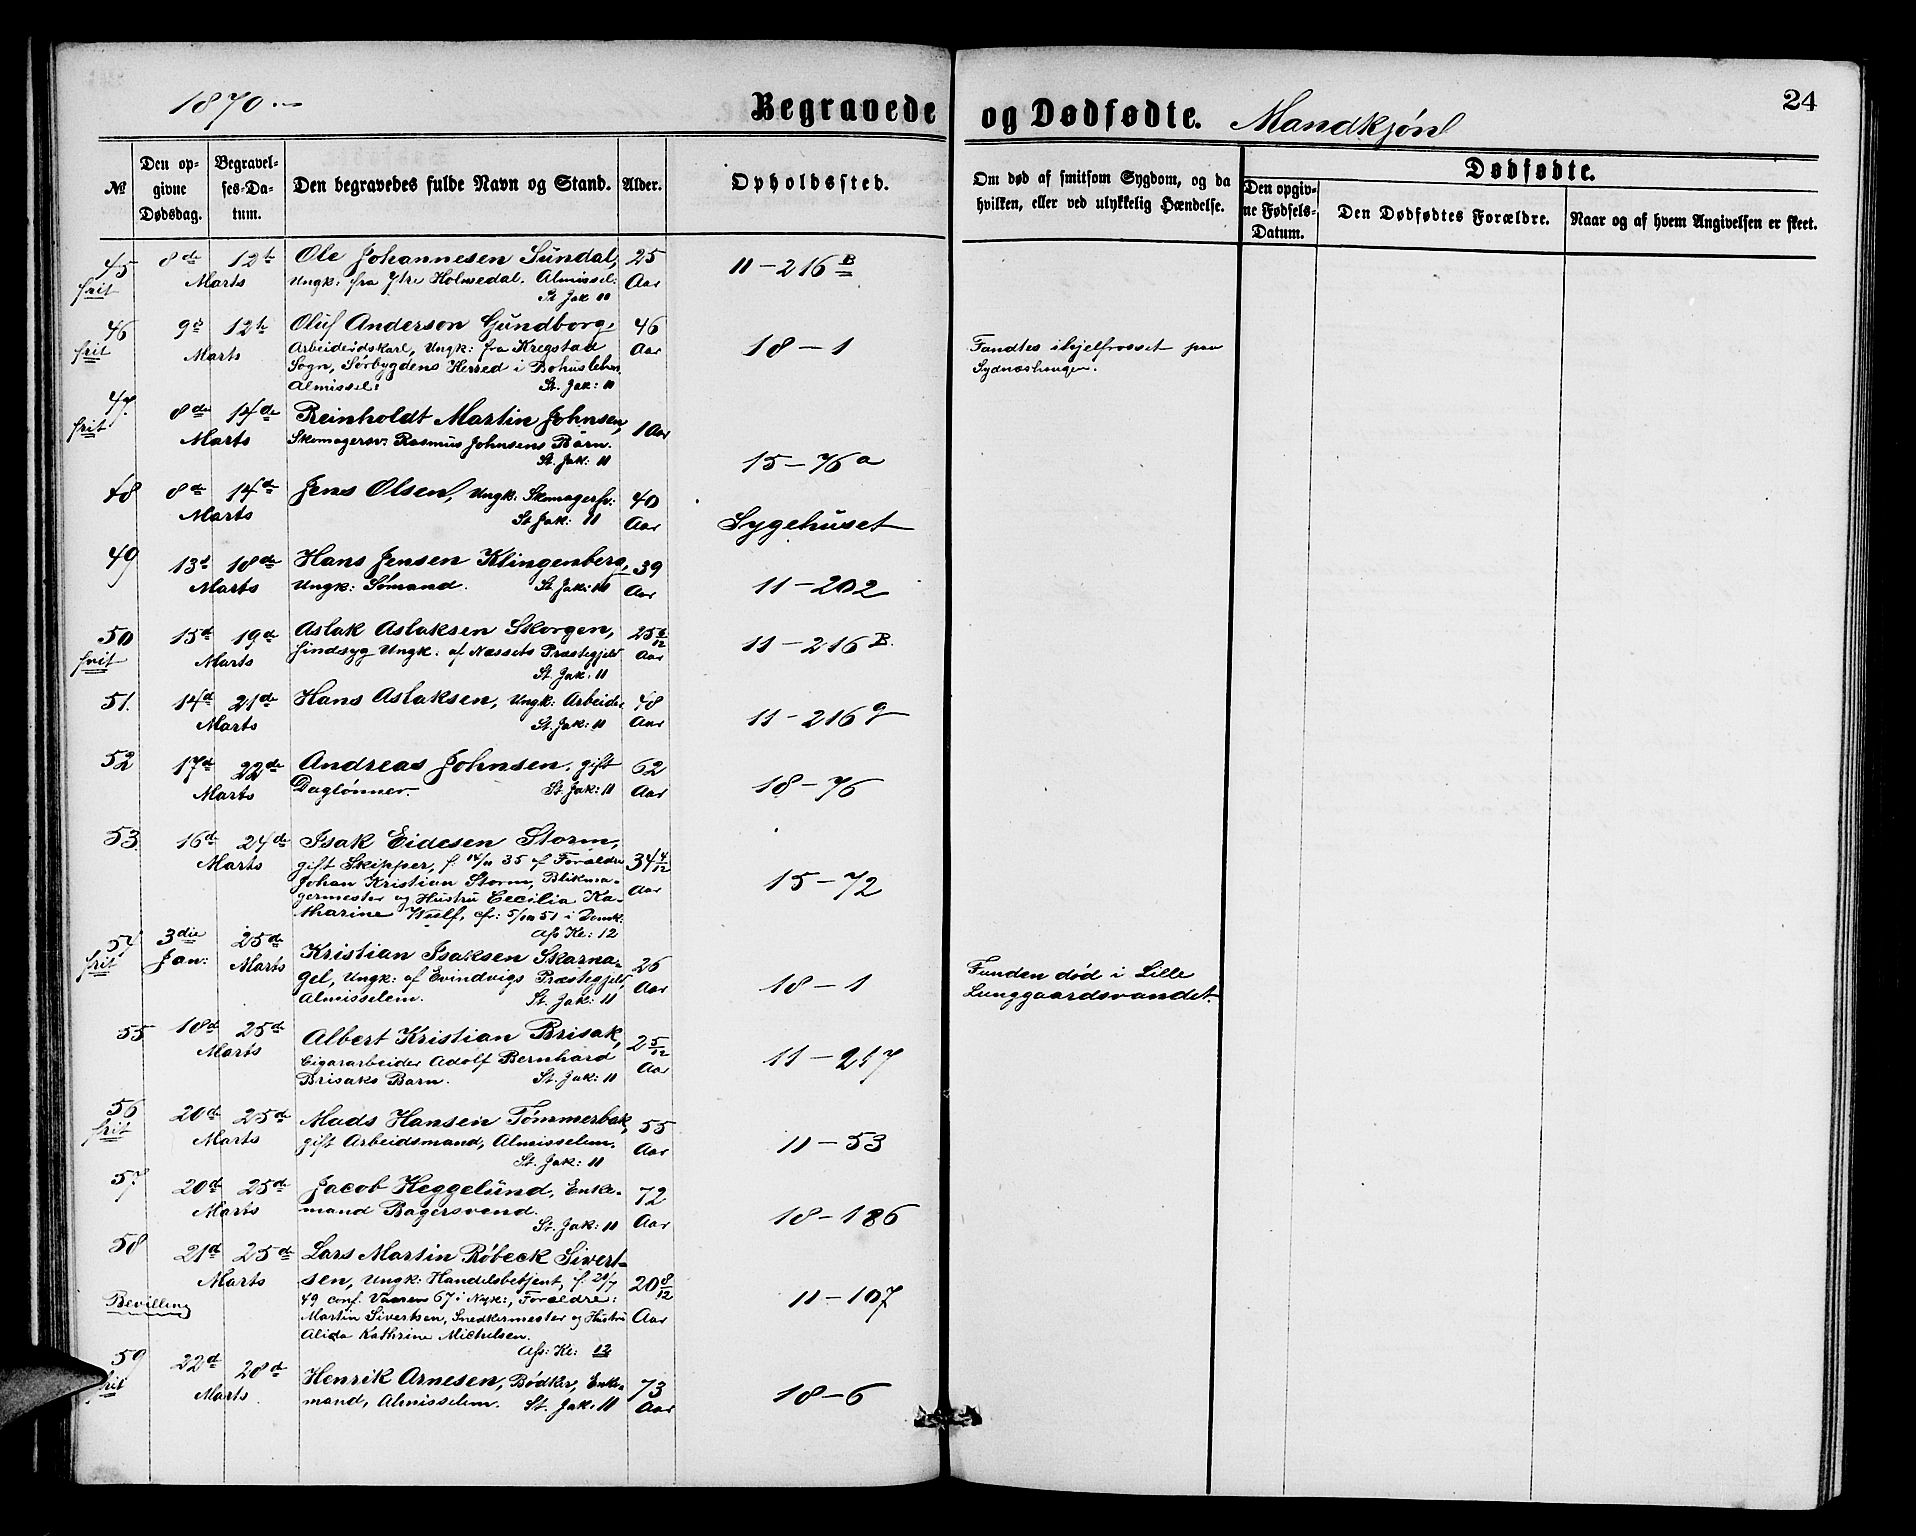 1870.
Begravede og Dødfødte. Mandkjøn
24
№ Den opgivne Dødsdag. Begravelses-Datum. Den begravedes fulde Navn og Stand. Alder. Opholdssted. Om død af smitsom Sygdom, og da hvilken, eller ved ulykkelig Hændelse. Dødfødte.
Den opgivne Fødsels-Datum. Den Dødfødtes Forældre. Naar og af hvem Angivelsen er skeet.
45 8de 12te Ole Johannesen Sundal, 25 11-216 B
frit Marts Ungk. fra Ytre Holmedal. Almissel: Aar
St. Jak 11
46 9de 12te Oluf Anderson Gundborg, 46 18-1 Fandtes ihjelfrosset paa
frit Marts Arbeidskarl, Ungk: fra Kregstad Aar Sydnæshaugen.
Sogn, Sørbygdens Herred i Bohuslehn,
Almissel: St. Jak: 11
47. 8de 14de Reinholdt Martin Johnsen, 1 Aar 15-76a
frit Marts Skomagersv: Rasmus Johnsens Barn.
St. Jak: 11
48 8de 14de Jens Olsen, Ungk: Skomagersv: 40 Sygehuset
Marts St. Jak: 11 Aar
49 13de 18de Hans Jensen Klingenberg, 39 11-202
Marts Ungk: Sømand. St. Jak: 11 Aar
50 15de 19de Aslak Aslaksen Skorgen, 25 11-216 B.
frit Marts sindsyg Ungk: af Næssets Præstegjeld Aar
St. Jak. 11
51. 14de 21de Hans Aslaksen, Ungk: Arbeider 48 11-216 g
Marts St. Jak: 11 Aar
52 17de 22de Andreas Johnsen, gift 62 18-76
Marts Dagtønner. St. Jak: 11 Aar
53. 16de 24de Isak Eidesen Storm, 34 4/12 15-72
Marts gift Skipper, f. 14/11 35 af Forældre Aar
Johan Kristian Storm, Blikma-
germester og Hustru Cecilia Ka-
tharine Wulf, cfr: 5/10 51 i Domk.
Ass Kl: 12
54 3die 25de Kristian Isaksen Skarna- 26 18-1 Funden død i Lille
frit Jan: Marts gel, Ungk: af Evindvigs Præstegjeld, Aar Lunggaardsvandet.
Almisselem. St. Jak: 11
55 18de 25de Albert Kristian Brisak, 2 5/12 11-217
Marts Cigararbeider Adolf Bernhard Aar
Brisaks Barn. St. Jak: 11
56 20de 25de Mads Hansen Tømmerbak, 55 11-53
frit Marts gift Arbeidsmand, Almisselem. Aar
St. Jak: 11
57 20de 25de Jacob Heggelund, Enke- 72 18-186
Marts mand Bagersvend. St. Jak: 11 Aar
58 21de 25de Lars Martin Røbeck Sivert- 20 8/12 11-107
Marts sen, Ungk: Handelsbetjent, f. 20/7 Aar
Bevilling 49 conf. Vaaren 67 i Nyk:, Forældre:
Martin Sivertsen, Snedkermester og Hustru
Alida Kathrine Michelsen.
Ass: Kl: 12
59 22de 28de Henrik Arnesen, Bødker, Enke- 73 18-6
frit Marts mand, Almisselem. St. Jak. 11 Aar